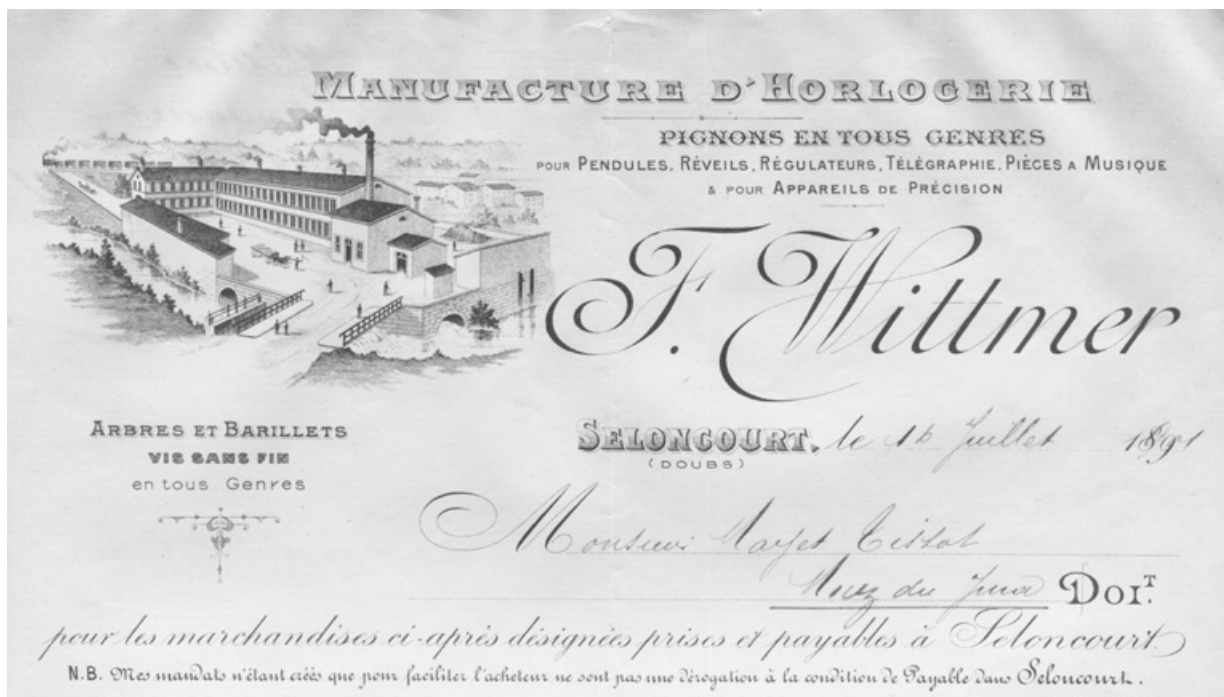 MANUFACTURE D'HORLOGERIE
PIGNONS EN TOUS GENRES
POUR PENDULES, RÉVEILS, RÉGULATEURS, TÉLÉGRAPHIE, PIÈCES A MUSIQUE
& POUR APPAREILS DE PRÉCISION
F. Wittmer
ARBRES ET BARILLETS
VIS SANS FIN
en tous Genres
SELONCOURT, le 16 Juillet 1891
(DOUBS)
Monsieur
du Jura DOIT.
pour les marchandises ci-après désignées prises et payables à Seloncourt.
N.B. Mes mandats n'étant créés que pour faciliter l'acheteur ne sont pas une dérogation à la condition de Payable dans Seloncourt.